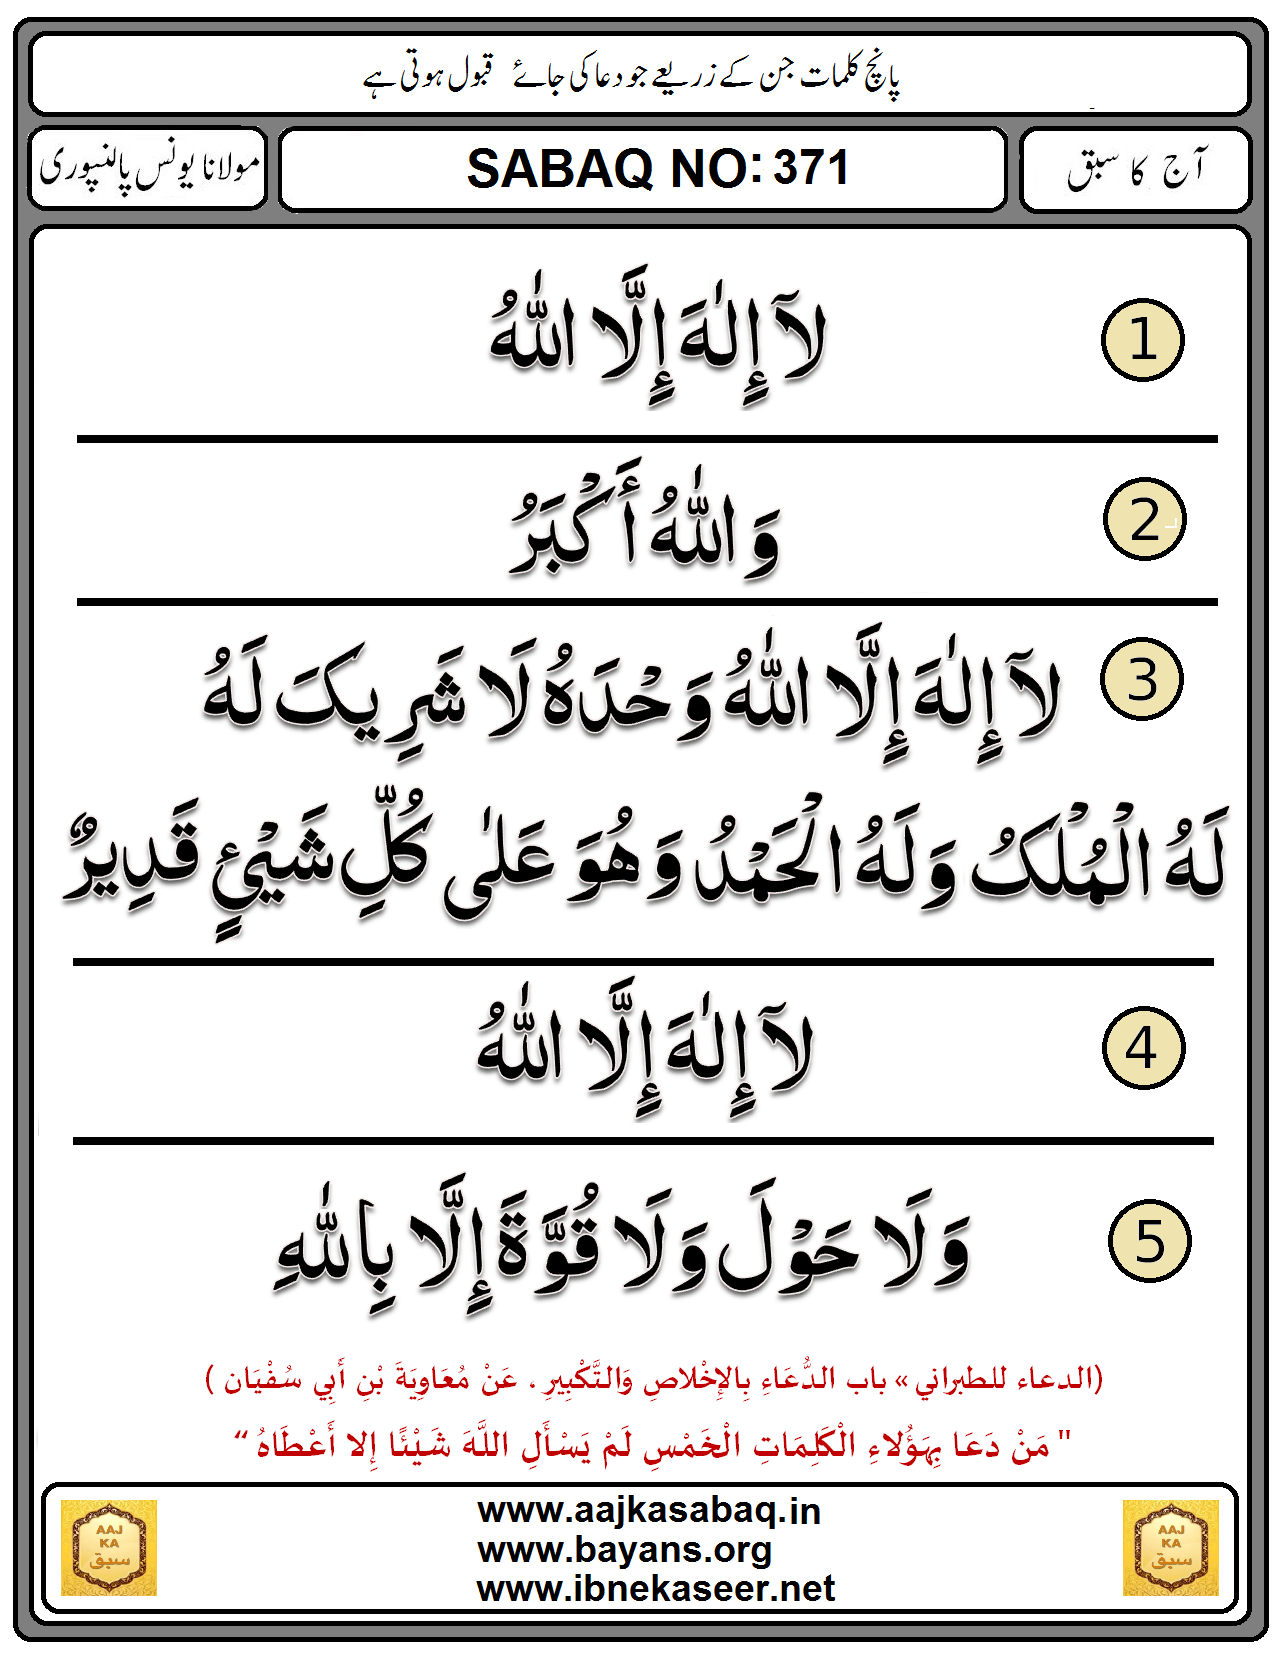 پانچ کلمات جن کے زریعے جو دعا کی جائے قبول ہوتی ہے
آج کا سبق
SABAQ NO: 371
مولانا یونس پالنپوری
1
لَآ إِلٰهَ إِلَّا اللّٰهُ
2
وَاللّٰهُ أَكْبَرُ
3
لَآ إِلٰهَ إِلَّا اللّٰهُ وَحْدَهُ لَا شَرِيكَ لَهُ
لَهُ الْمُلْكُ وَلَهُ الْحَمْدُ وَهُوَ عَلٰى كُلِّ شَيْئٍ قَدِيرٌ
4
لَآ إِلٰهَ إِلَّا اللّٰهُ
5
وَلَا حَوْلَ وَلَا قُوَّةَ إِلَّا بِاللّٰهِ
(الدعاء للطبراني » باب الدُّعَاءِ بِالإِخْلاصِ وَالتَّكْبِيرِ ، عَنْ مُعَاوِيَةَ بْنِ أَبِي سُفْيَان )
" مَنْ دَعَا بِهَؤُلاءِ الْكَلِمَاتِ الْخَمْسِ لَمْ يَسْأَلِ اللَّهَ شَيْئًا إِلا أَعْطَاهُ “
www.aajkasabaq.in
www.bayans.org
www.ibnekaseer.net
AAJ
KA
سبق
AAJ
KA
سبق